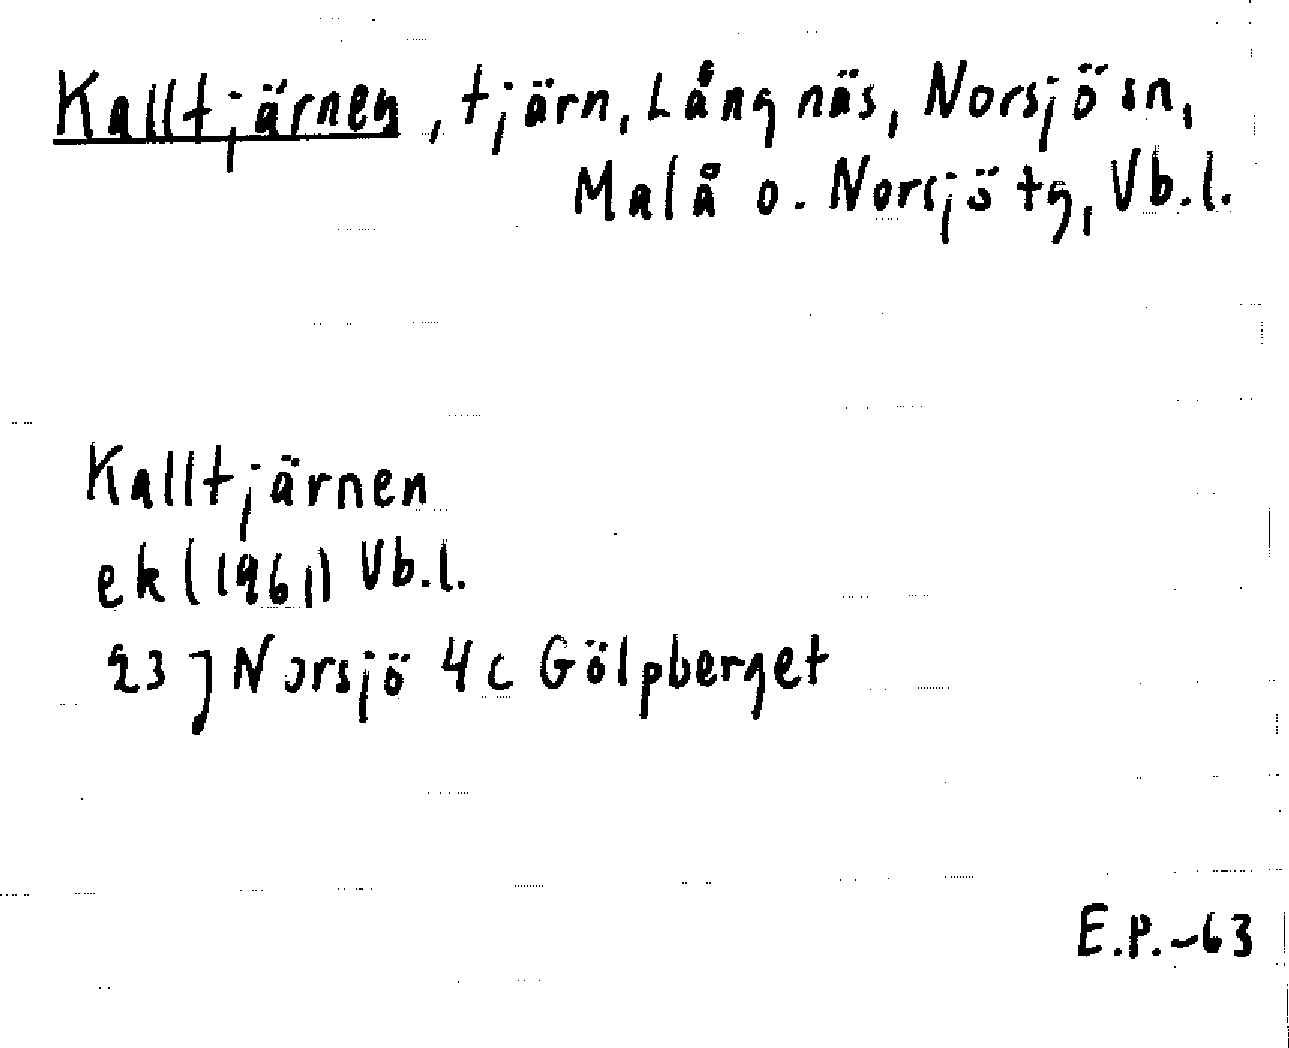 Kalltjärnen, tjärn, Långnäs, Norsjö sn,
Malå o. Norsjö tg, Vb.l.
Kalltjärnen
ek (1961) Vb.l.
23 J Norsjö 4 c Gölpberget
E.P.-63